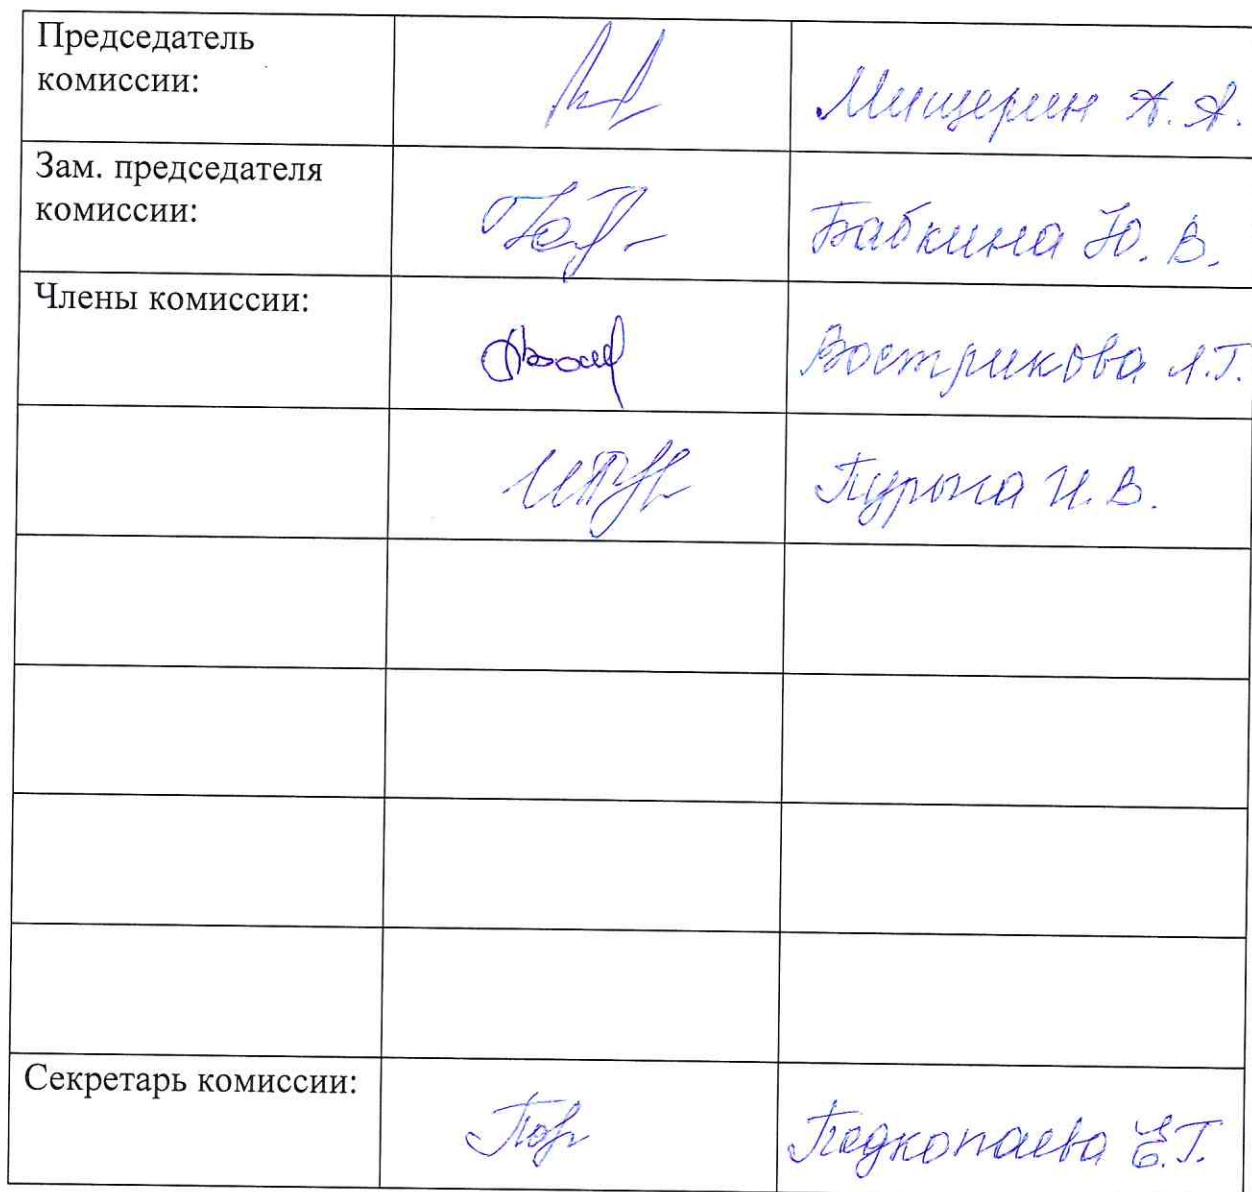 Председатель
комиссии:
Мищерин А. А.
Зам. председателя
комиссии:
Бабкина Ю. В.
Члены комиссии:
Вострикова Л.Г.
Пурыга И. В.
Секретарь комиссии:
Подкопаева Е.Г.